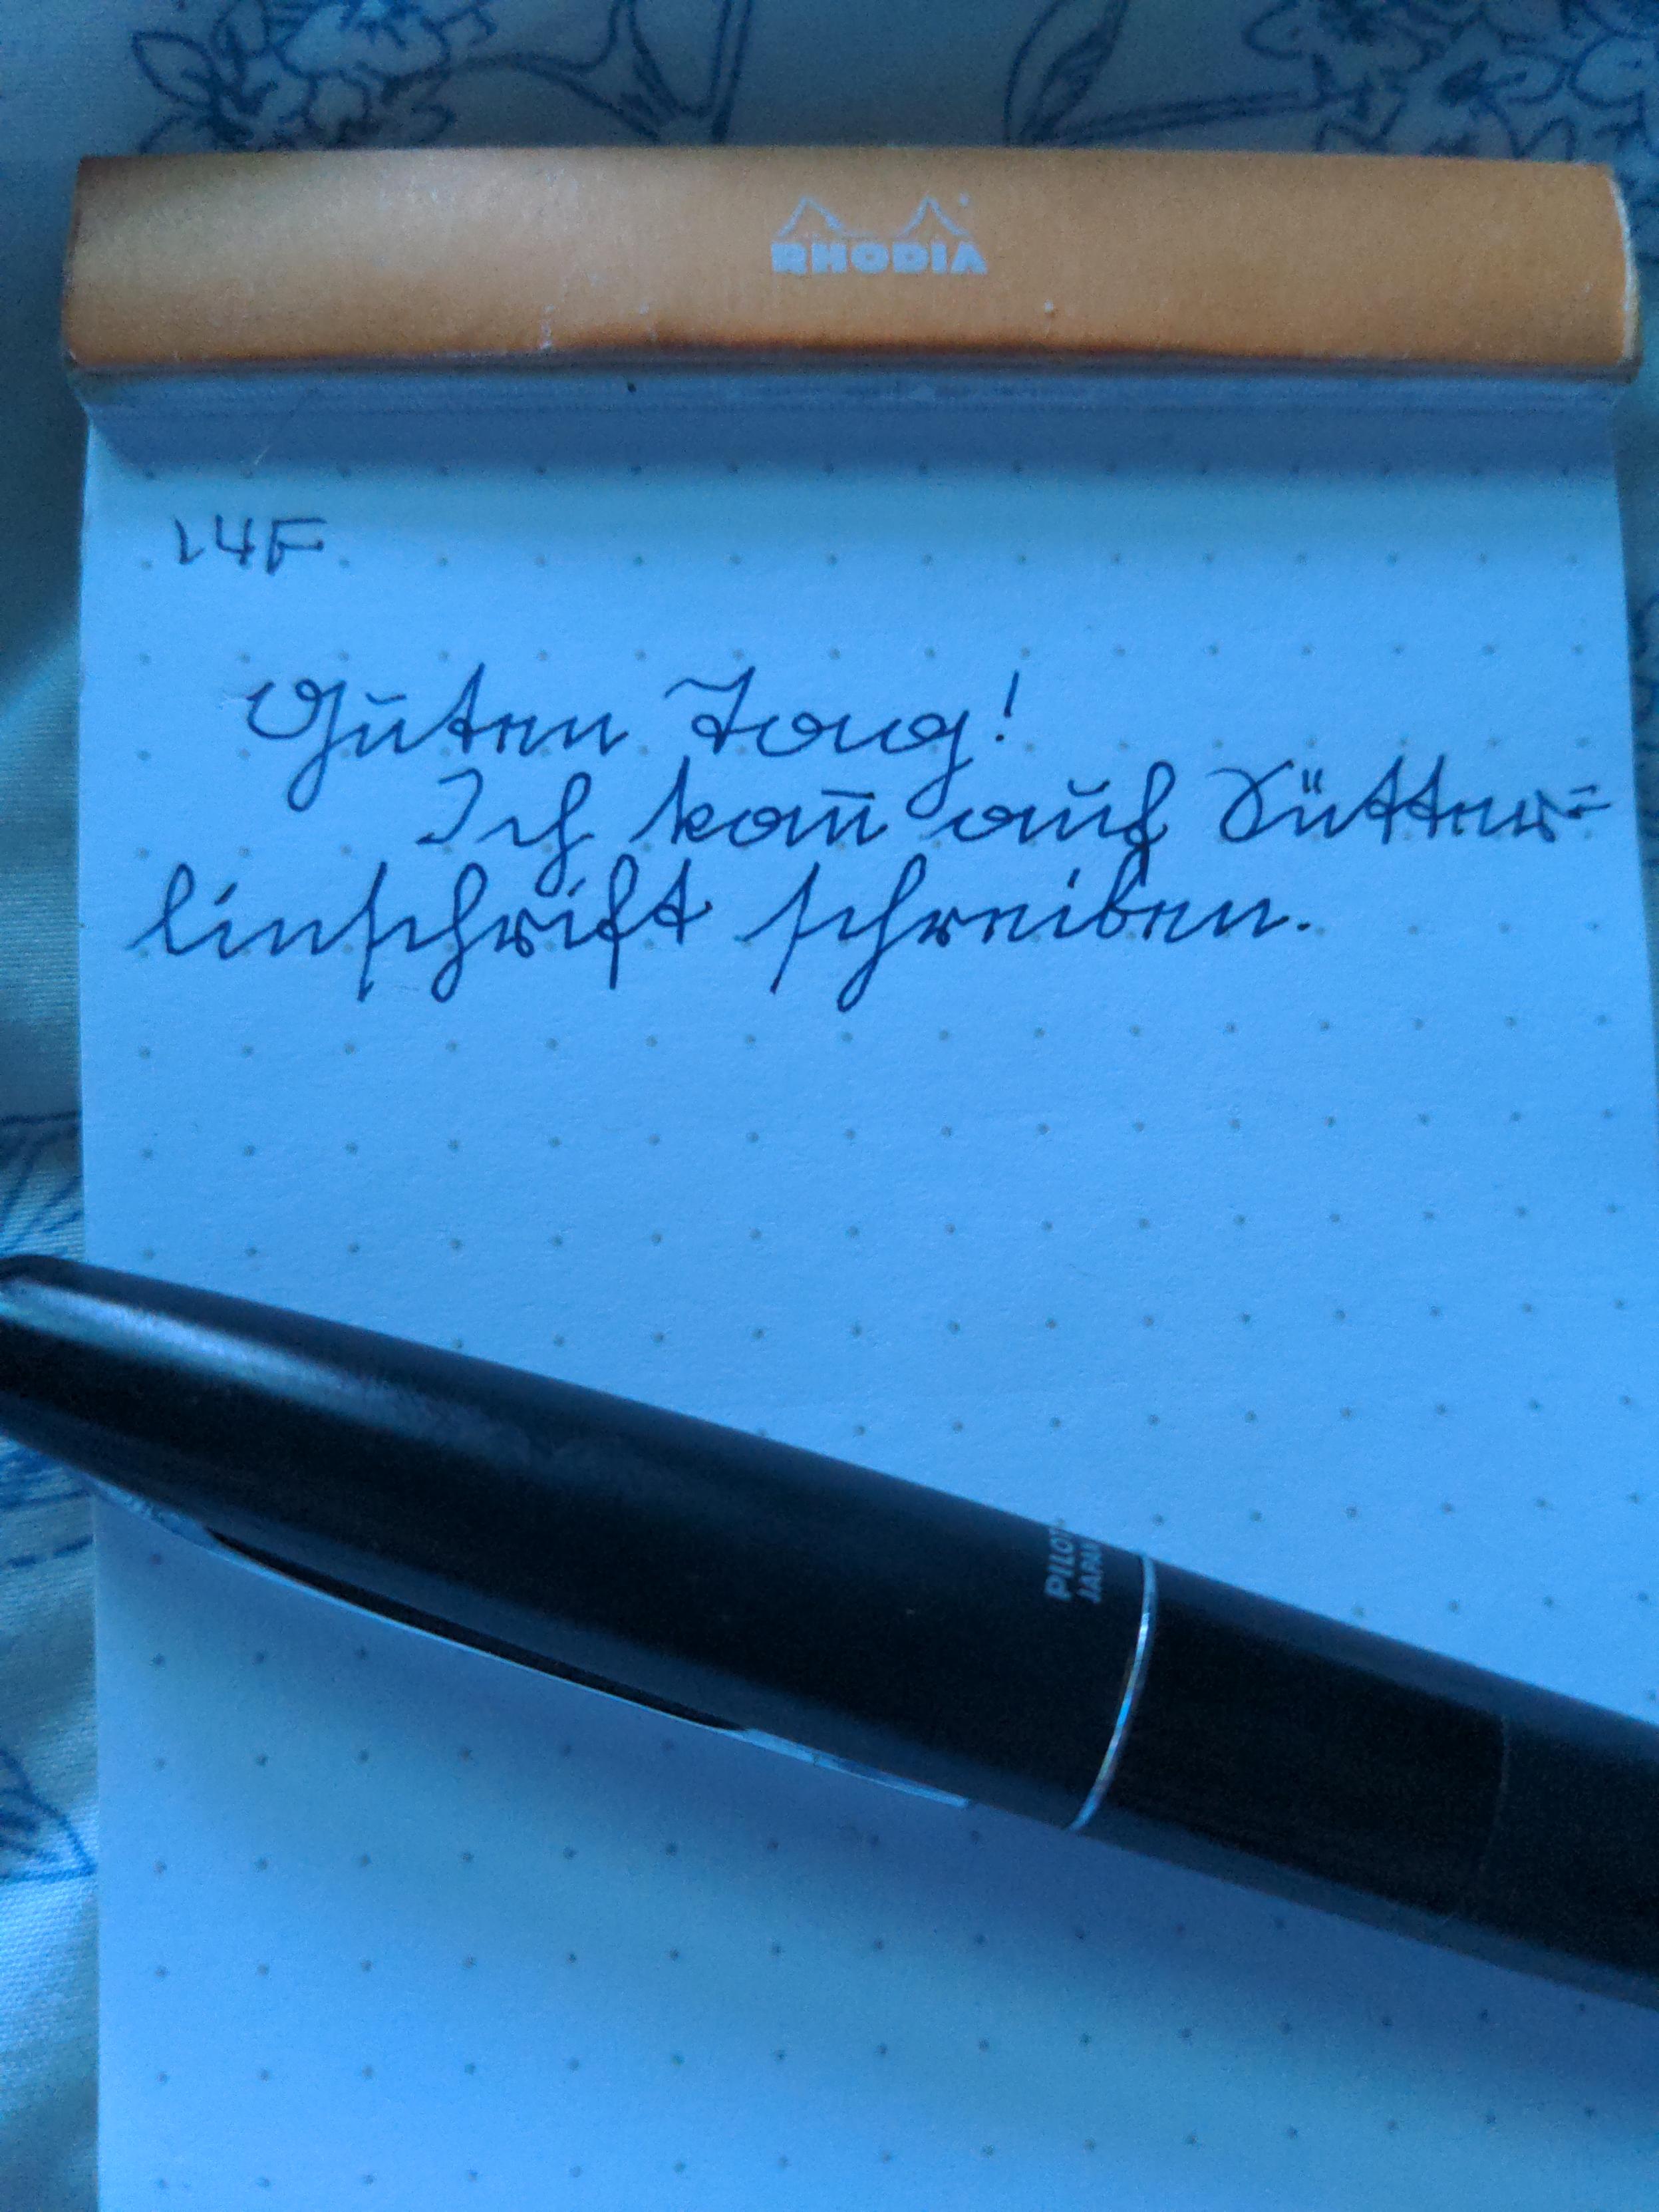 RHODIA
14F
Guten Tag!
Ich kan̅ auch Sütter=
linschrift schreiben.
PILOT
JAPAN